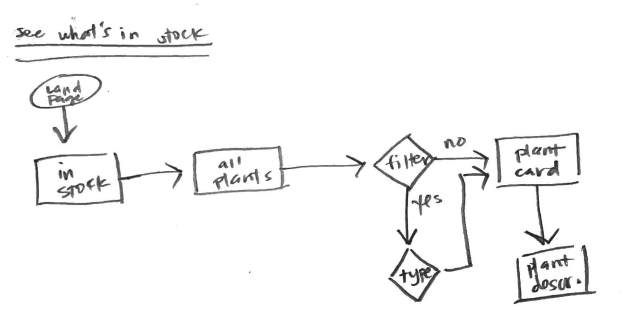 see what's in stock
Land
Page
in
stock
all
plants
filter
no
yes
type
plant
card
plant
descr.